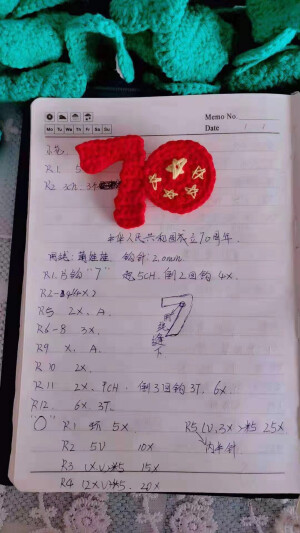 Memo No.
Mo Tu We Th Fr Sa Su
Date / /
R1 5
R2 3CH. 3
中华人民共和国成立70周年.
钩针 2.0mm
R1.片钩"7" 起5CH. 倒2回钩 4X.
R2-
R5 2X. A.
R6-8 3X.
R9 X. A.
R10 2X.
R11 2X. PCH. 倒3回钩3T. 6X.
R12. 6X 3T.
"O" R1 环 5X
R5 (V,3X)*5 25X
R2 5V 10X
内半针
R3 (X V)*5 15X
R4 (2X V)*5. 20X